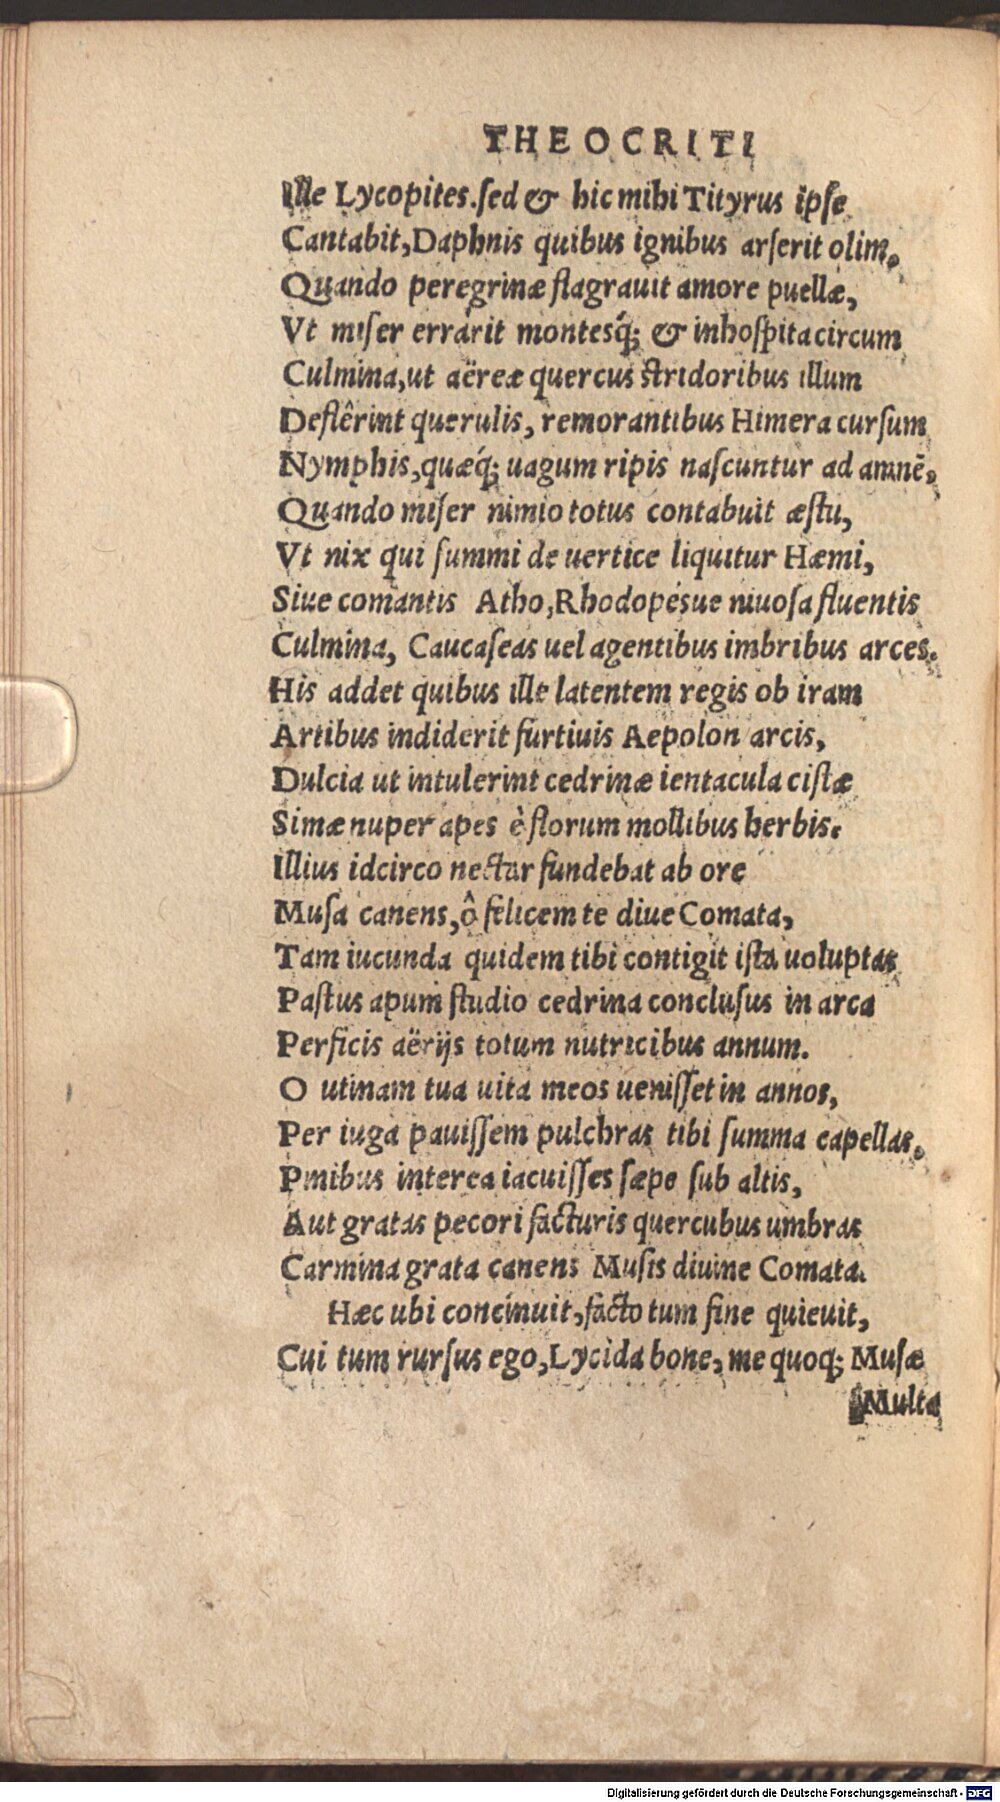 THEOCRITI
Ille Lycopites. sed & hic mihi Tityrus ipse
Cantabit, Daphnis quibus ignibus arserit olim,
Quando peregrinæ flagrauit amore puellæ,
Vt miser errârit montesq́; & inhospita circum
Culmina, ut aëreæ quercus stridoribus illum
Deflêrint querulis, remorantibus Himera cursum
Nymphis, quæq́; uagum ripis nascuntur ad amnē,
Quando miser nimio totus contabuit æstu,
Vt nix qui summi de uertice liquitur Hæmi,
Siue comantis Atho, Rhodopésue niuosa fluentis
Culmina, Caucaseas uel agentibus imbribus arces.
His addet quibus ille latentem regis ob iram
Artibus indiderit furtiuis Aepolon arcis,
Dulcia ut intulerint cedrinæ ientacula cistæ
Simæ nuper apes è florum mollibus herbis.
Illius idcirco nectar fundebat ab ore
Musa canens, ô felicem te diue Comata,
Tam iucunda quidem tibi contigit ista uoluptas
Pastus apum studio cedrina conclusus in arca
Perficis aërijs totum nutricibus annum.
O utinam tua uita meos uenisset in annos,
Per iuga pauissem pulchras tibi summa capellas,
Pinibus interea iacuisses sæpe sub altis,
Aut gratas pecori facturis quercubus umbras
Carmina grata canens Musis diuine Comata.
Hæc ubi concinuit, facto tum fine quieuit,
Cui tum rursus ego, Lycida bone, me quoq; Musæ
Multa
Digitalisierung gefördert durch die Deutsche Forschungsgemeinschaft - DFG